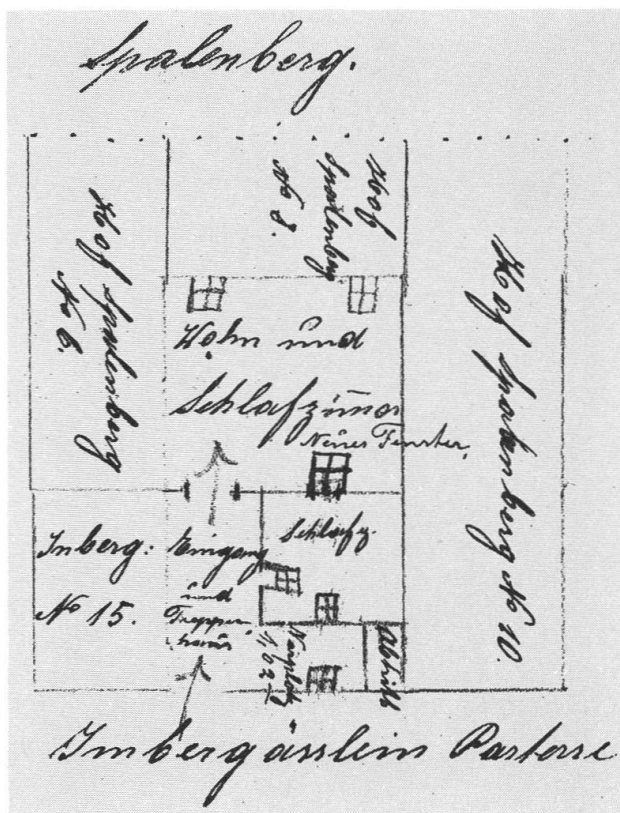 Spalenberg.
Hof Spalenberg
No 6.
Hof
Spalenberg
No 8.
Hof Spalenberg No 10.
Wohn und
Schlafzimer
Neues Fenster,
Schlafz.
Imberg: Eingang
No 15. und
Treppen
haus
Abtritt
Imbergässlein Parterre